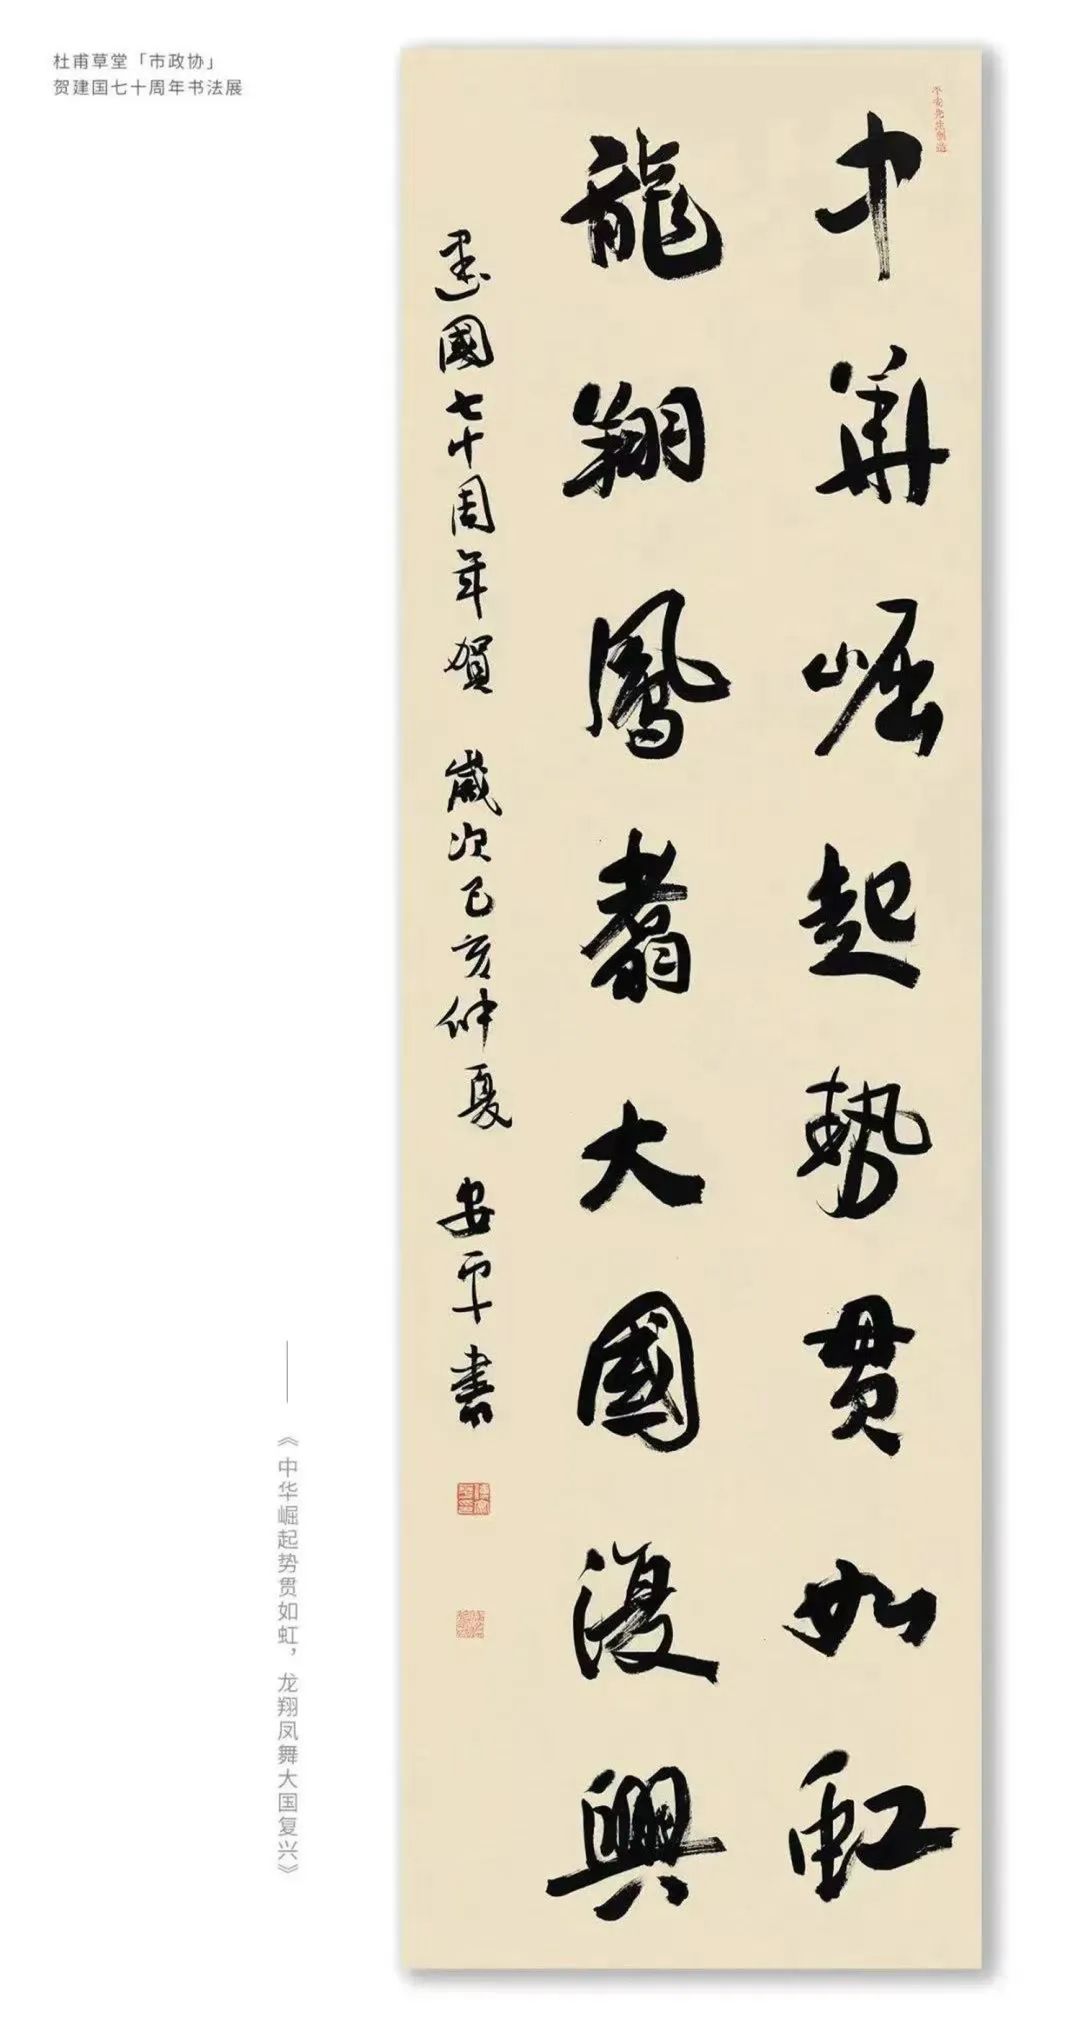 杜甫草堂「市政协」
贺建国七十周年书法展
中華崛起勢贯如虹
龍翔鳳翥大國復興
建國七十周年賀 歲次己亥仲夏 安平書
《中华崛起势贯如虹，龙翔凤舞大国复兴》